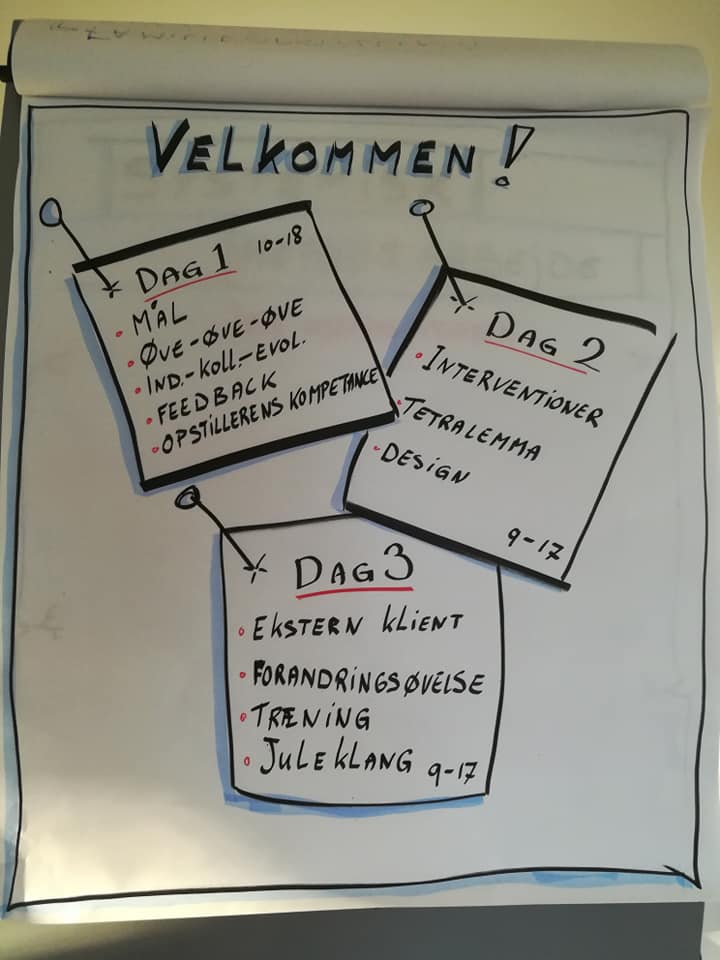 VELKOMMEN!
DAG 1 10-18
• MÅL
• ØVE-ØVE-ØVE
• IND.-KOLL.-EVOL.
• FEEDBACK
• OPSTILLERENS KOMPETANCE
DAG 2
• INTERVENTIONER
• TETRALEMMA
• DESIGN
9-17
DAG 3
• EKSTERN KLIENT
• FORANDRINGSØVELSE
• TRÆNING
• JULEKLANG 9-17